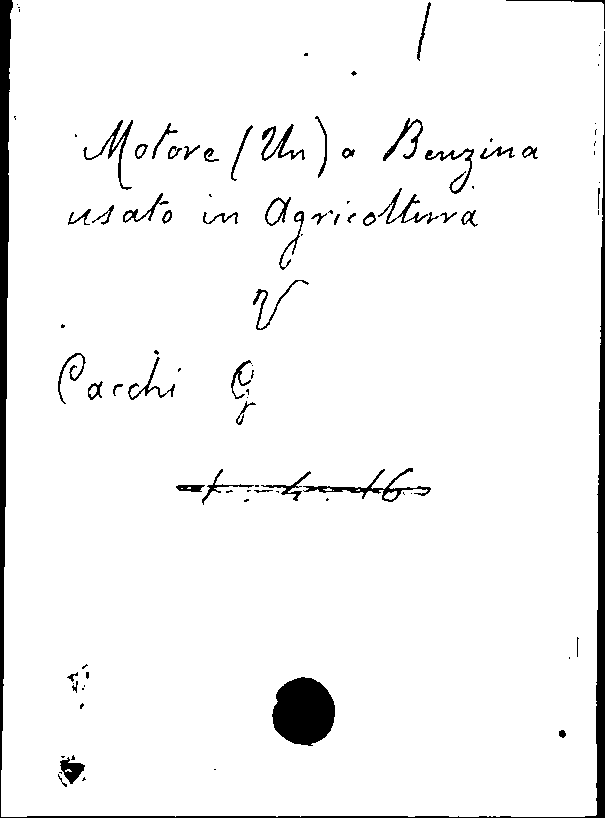 Motore (Un) a Benzina
usato in Agricoltura
V
Cacchi G
1 . 4 . 16